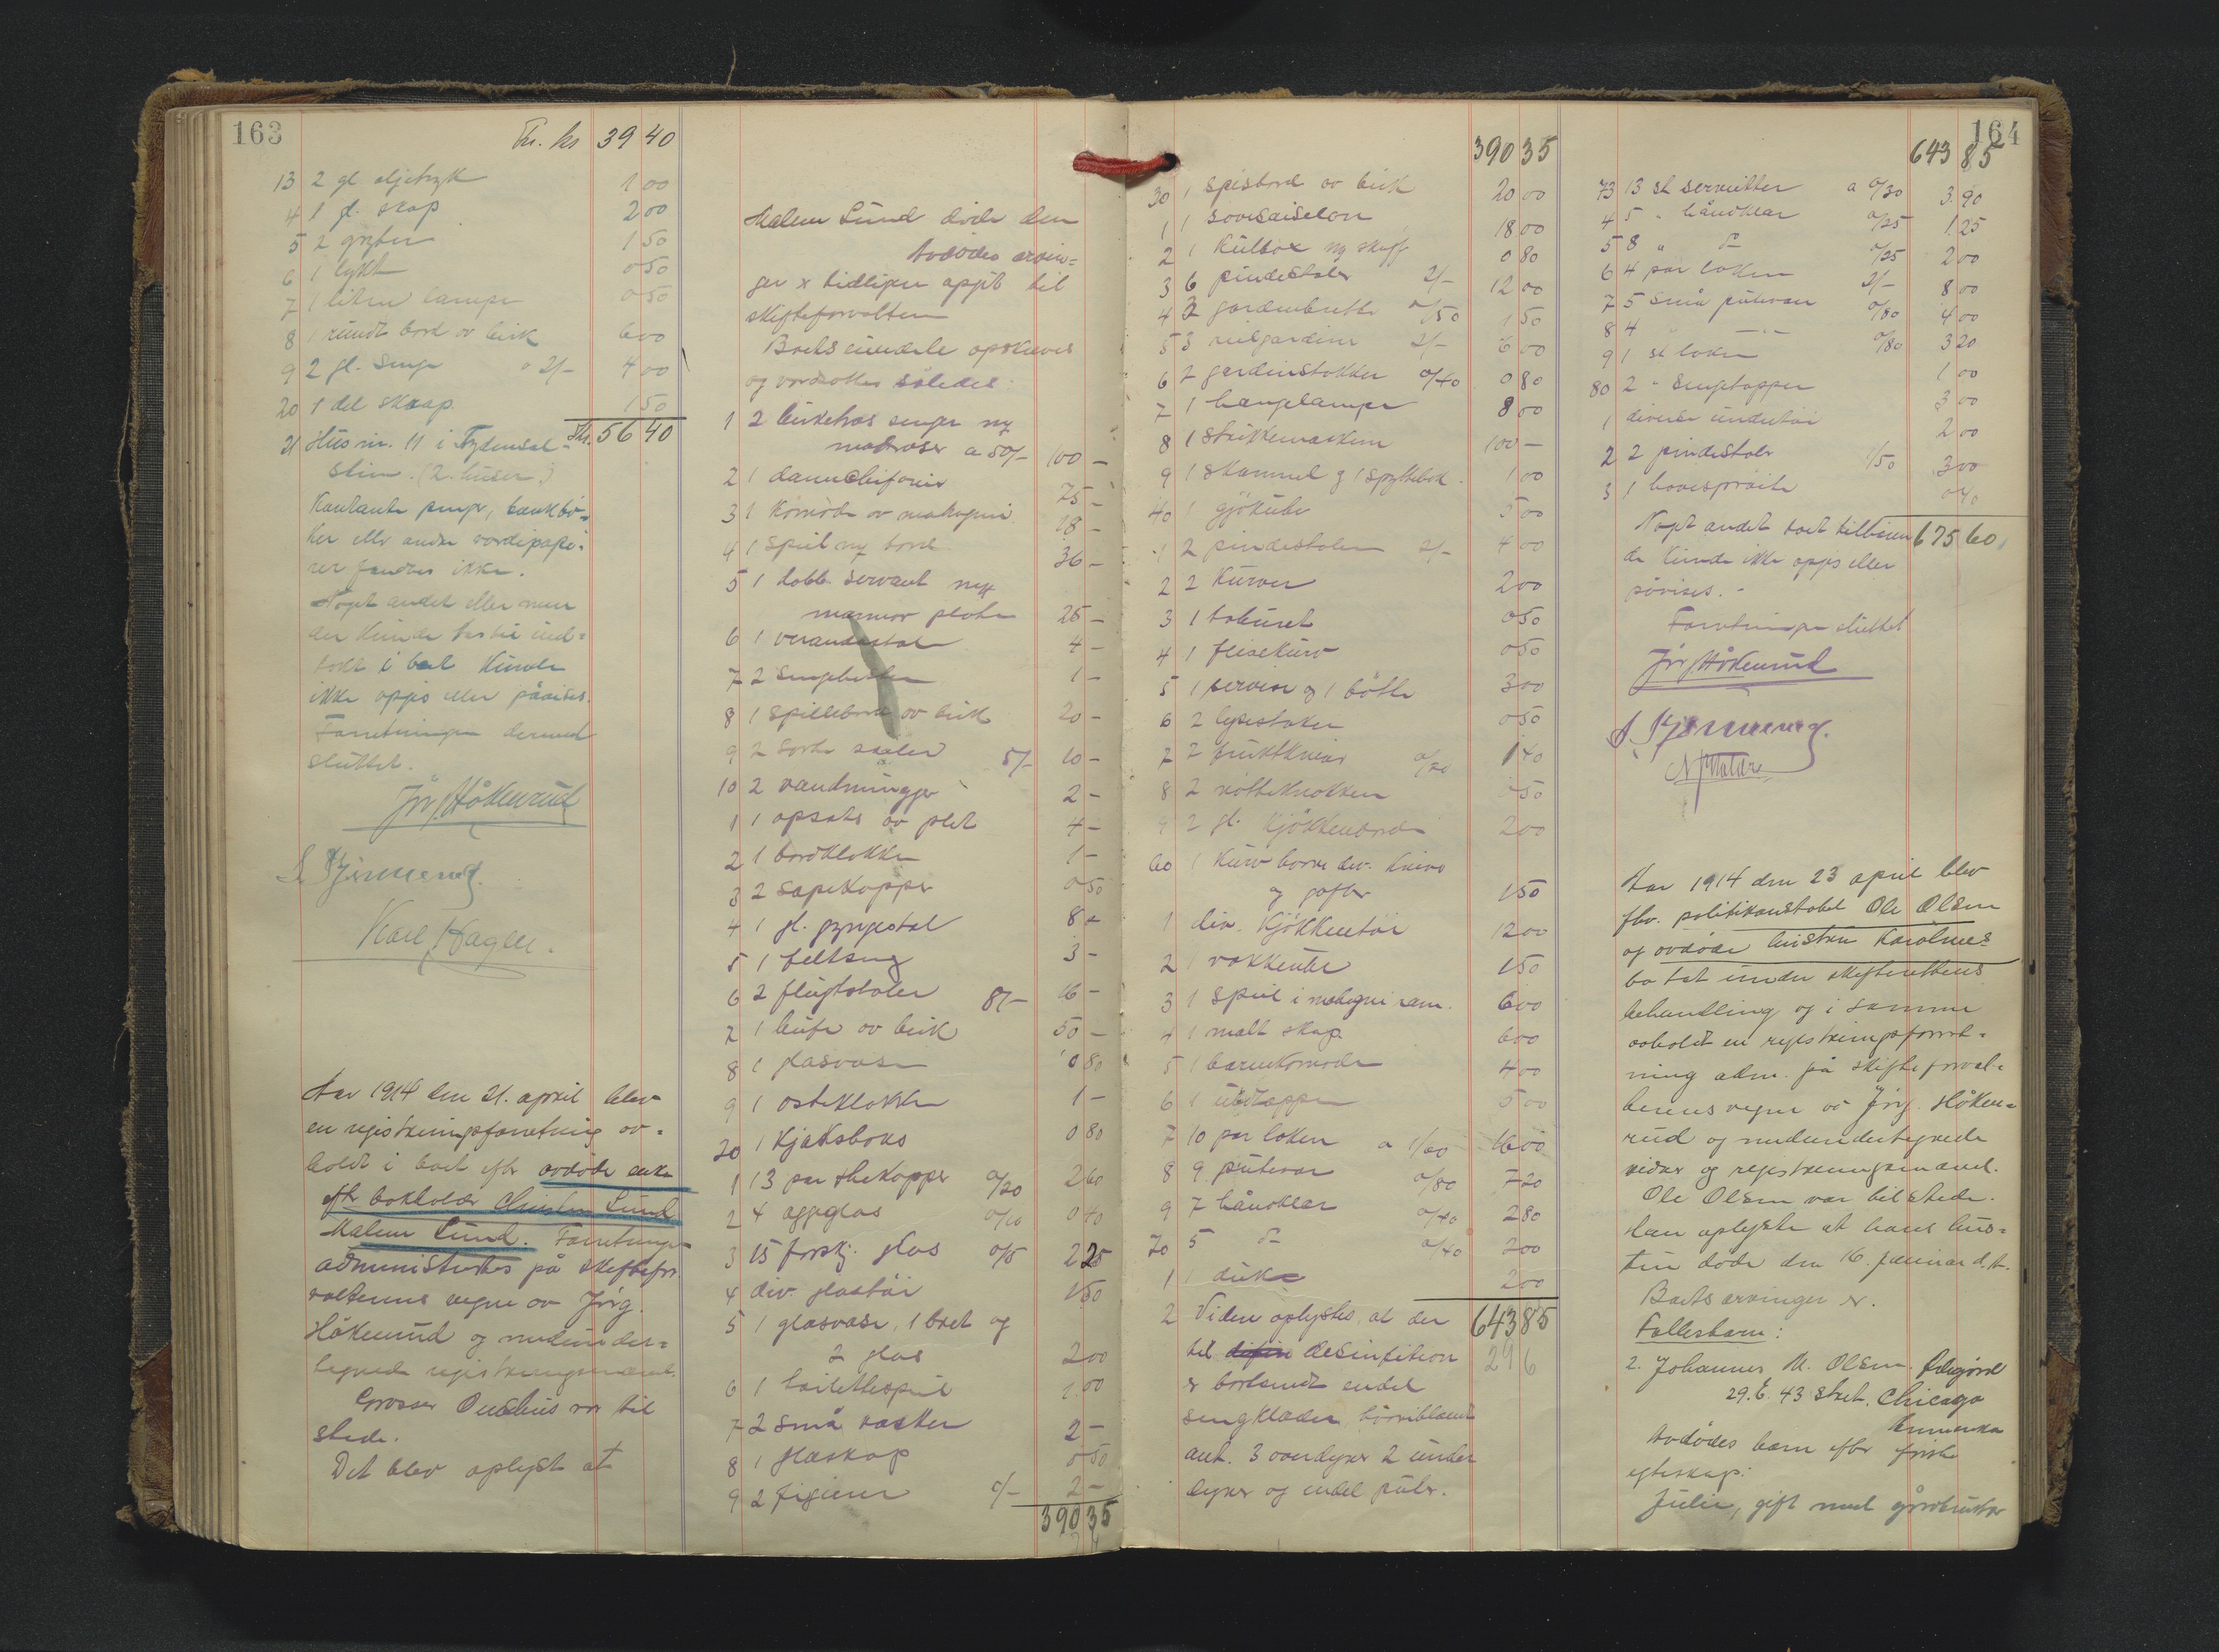 163
Tr. kr 39 40
13 2 gl. oljetryk 1 00
4 1 gl. skap 2 00
5 2 gryter 1 50
6 1 lykt 0 50
7 1 liten lampe 0 50
8 1 rundt bord av birk 6 00
9 2 gl. senge a 2/- 4 00
20 1 del skrap. 1 50
21 Hus nr. 11 i 56 40
(2. huser.)
Kontante penge, bankbø-
ker eller andre værdipapi-
rer fandtes ikke.
Noget andet eller mere
der kunde
i boet kunde
ikke opgis eller påvises.
Forretningen dermed
sluttet.
Jørg. Håkenrud
Karl Hagen.
Aar 1914 den 21. april blev
en registreringsforretning av-
holdt i boet efter avdøde enke
eftr bokholder Christen Lund
Malene Lund. Forretningen
administrertes på skiftefor-
valterens vegne av Jørg.
Håkenrud og medunder-
tegnede registreringsmænd.
var til
stede.
Det blev oplyst at
Malene Lund døde den
Avdødes arvin-
ger x tidligere opgit til
skifteforvalteren
Boets eiendele opskreves
og værdsattes således:
1 2 birketræs senger
matraser a 50/- 100 -
2 1 damechifonier 75 -
3 1 Komode av mahogni 18 -
4 1 speil 36 -
5 1 dobb. servant
marmor plate 25 -
6 1 verandastol 4 -
7 2 1 -
8 1 spillebord av birk 20 -
9 2 sorte søiler 5/- 10 -
10 2 vandmugger 2 -
1 1 opsats av plet 4 -
2 1 bordklokke 1 -
3 2 sapekopper 0 50
4 1 gl. gyngestol 8 -
5 1 feltseng 3 -
6 2 fløistoler 8/- 16 -
7 1 bufe av birk 50 -
8 1 glasvase 0 80
9 1 osteklokke 1 -
20 1 Kjeksboks 0 80
1 13 par thekopper 0/20 2 60
2 4 eggeglas 0/10 0 40
3 15 forskj. glas 0/15 2 25
4 div. glastøi 1 50
5 1 glasvase, 1 bret og
2 glas 2 00
6 1 toilettespeil 1 00
7 2 små vasker 2 -
8 1 glaskop 0 50
9 2 figurer 2 -
390 35
390 35
30 1 spisebord av birk 20 00
1 1 18 00
2 1 Kulbox 0 80
3 6 pindestoler 2/- 12 00
4 3 gardinbretter 0/50 1 50
5 3 rulgardiner 2/- 6 00
6 2 gardinstokker 0/40 0 80
7 1 hængelampe 8 00
8 1 strikkemaskine 100 -
9 1 skammel og 1 spyttebak 1 00
40 1 gjøkur 5 00
1 2 pindestoler 2/- 4 00
2 2 Kurver 2 00
3 1 taburet 0 50
4 1 fleisekurv 0 50
5 1 servise og 1 bøtte 3 00
6 2 lysestaker 0 50
7 7 fruktknive 0/20 1 40
8 2 0 50
9 2 gl. kjøkkenbord 2 00
60 1 Kurv div. knive
og gafler 1 50
1 div. Kjøkkentøi 12 00
2 1 vækkeur 1 50
3 1 speil i mahogni ram. 6 00
4 1 malt skap 6 00
5 1 barnekomode 4 00
6 1 uldteppe 5 00
7 10 par laken a 1/60 16 00
8 9 putevar 0/80 7 20
9 7 håndklær 0/40 2 80
70 5 0/40 2 00
1 1 duk 2 00
2 Videre oplystes, at der 643 85
til desinfition 296
er bortsendt endel
sengklæder, hvoriblandt
ant. 3 overdyner 2 under
dyner og endel puter.
164
643 85
73 13 st servietter a 0/30 3 90
4 5 " håndklær 0/25 1 25
5 8 " 0/25 2 00
6 4 par laken 2/- 8 00
7 5 små putevar 0/80 4 00
8 4 0/80 3 20
9 1 st laken 1 00
80 2 " sengetepper 3 00
1 diverse undertøi 2 00
2 2 pindestoler 1/50 3 00
3 1 havesprøite 0 40
Noget andet boet tilhøren- 675 60
de kunde ikke opgis eller
påvises. -
Forretningen sluttet
Jørg. Håkenrud
Aar 1914 den 23 april blev
fhv. politikonstabel Ole Olsen
og avdøde hustru Karolines
bo tat under skifterettens
behandling og i samme
avholdt en registreringsforret-
ning adm. på skifteforval-
terens vegne av Jørg. Håken-
rud og medundertegnede
vidner og registreringsmænd.
Ole Olsen var tilstede.
Han oplyste at hans hus-
tru døde den 16. januar d.å.
Boets arvinger er.
Fællesbarn:
2. Johannes M. Olsen.
29. E. 43 stret. Chicago
Amerika
Avdødes barn efter første
egteskap:
Julie, gift med